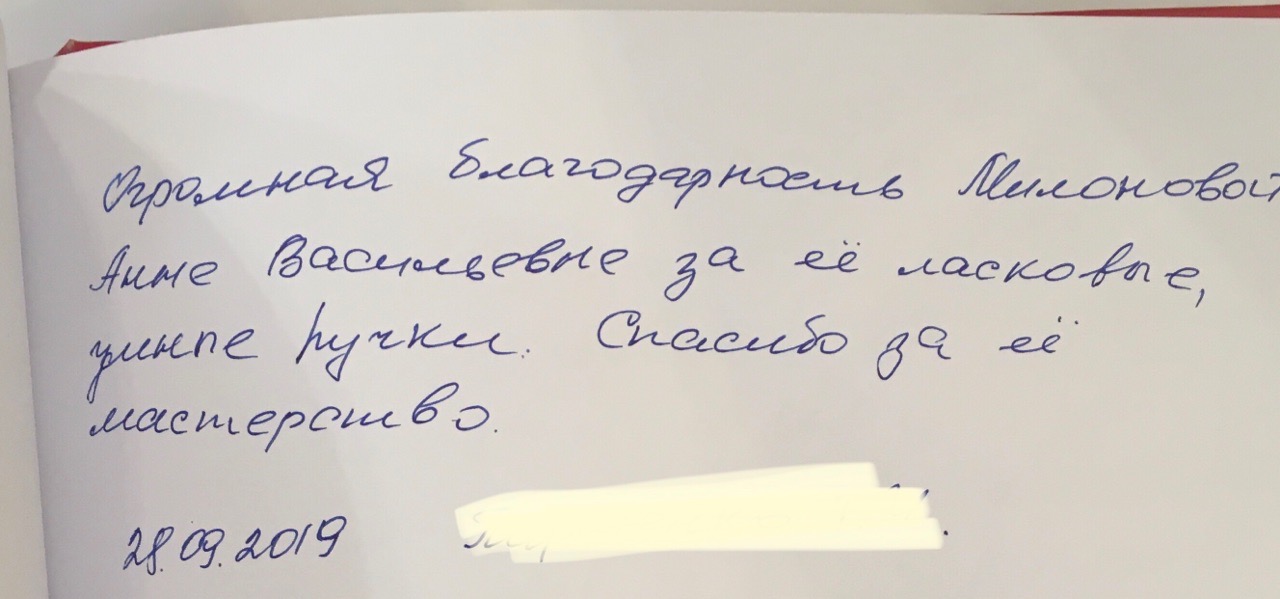 Огромная благодарность Милоновой
Анне Васильевне за её ласковые,
умные ручки. Спасибо за её
мастерство.
28.09.2019